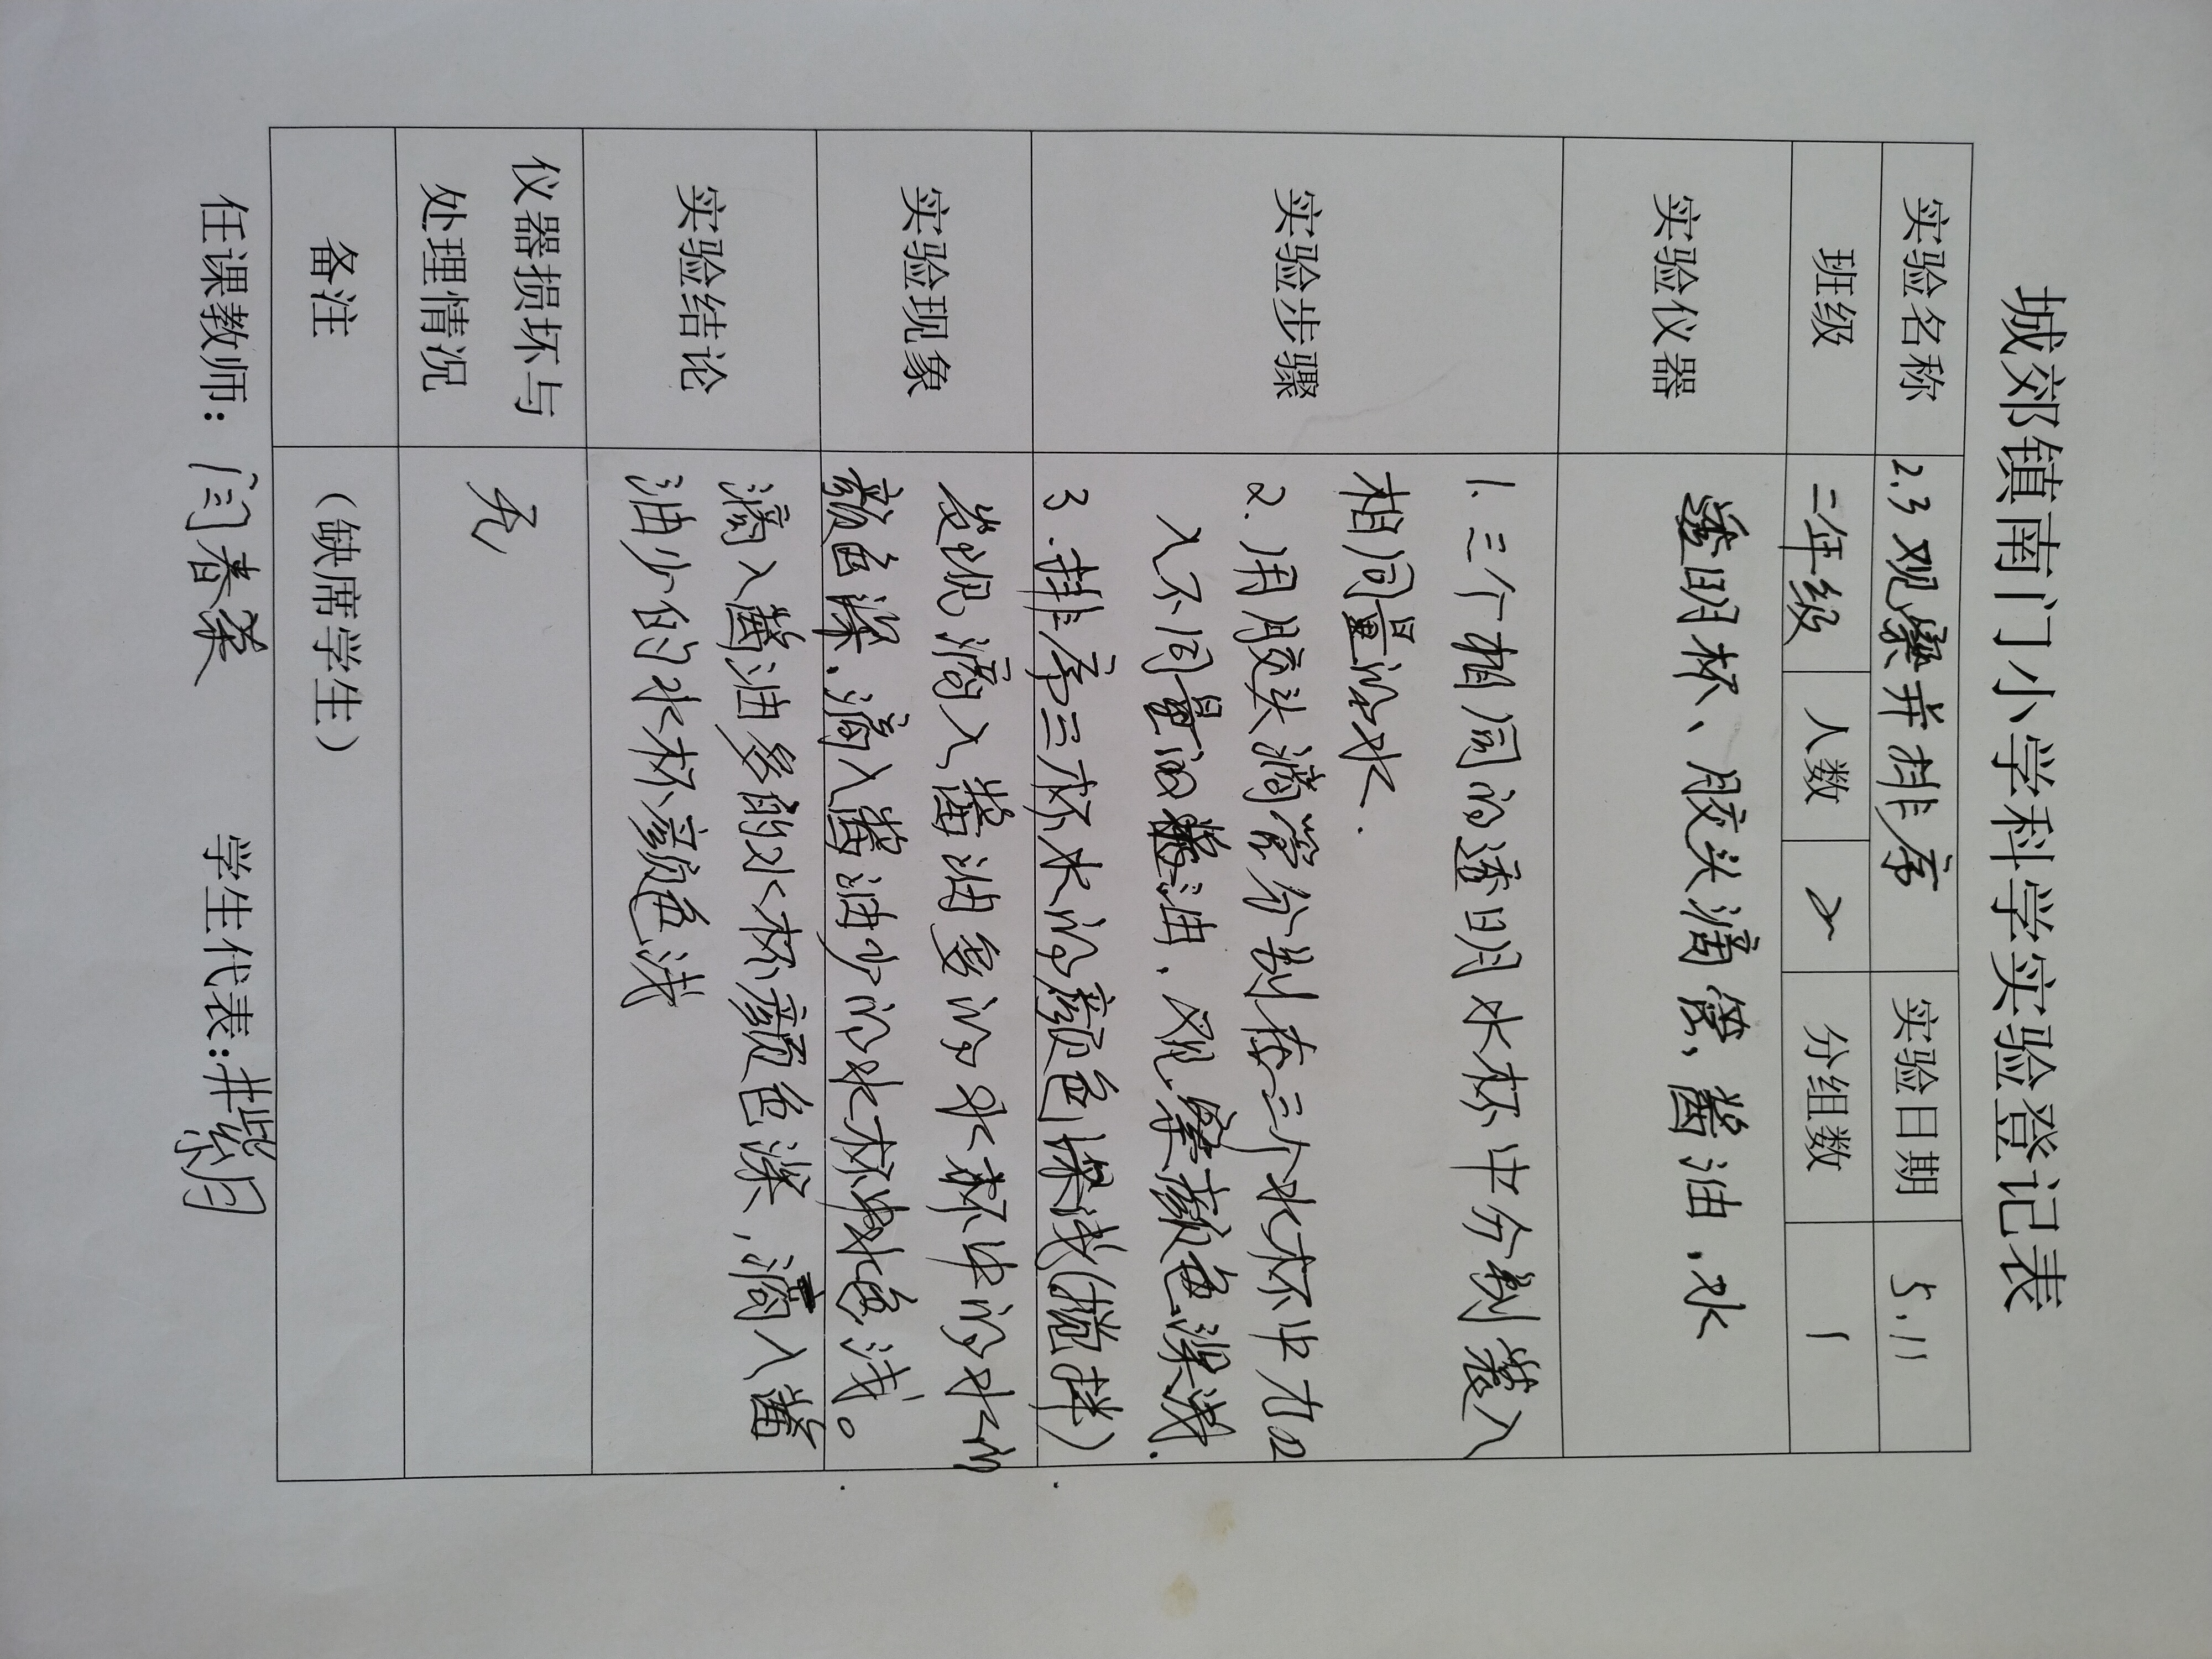 城郊镇南门小学科学实验登记表
实验名称 2.3 观察并排序 实验日期 5.11
班级 二年级 人数 2 分组数 1
实验仪器 透明杯、胶头滴管,酱油,水
实验步骤
1.三个相同的透明水杯中分别装入
相同量的水.
2.用胶头滴管分别在三个水杯中加
入不同量的酱油,观察颜色深浅.
3.排序三杯水的颜色深浅(搅拌)
实验现象
发现滴入酱油多的水杯中的水的
颜色深,滴入酱油少的水杯水色浅。
实验结论
滴入酱油多的水杯颜色深,滴入酱
油少的水杯颜色浅
仪器损坏与
处理情况
无
备注 (缺席学生)
任课教师:闫春 学生代表:井紫月